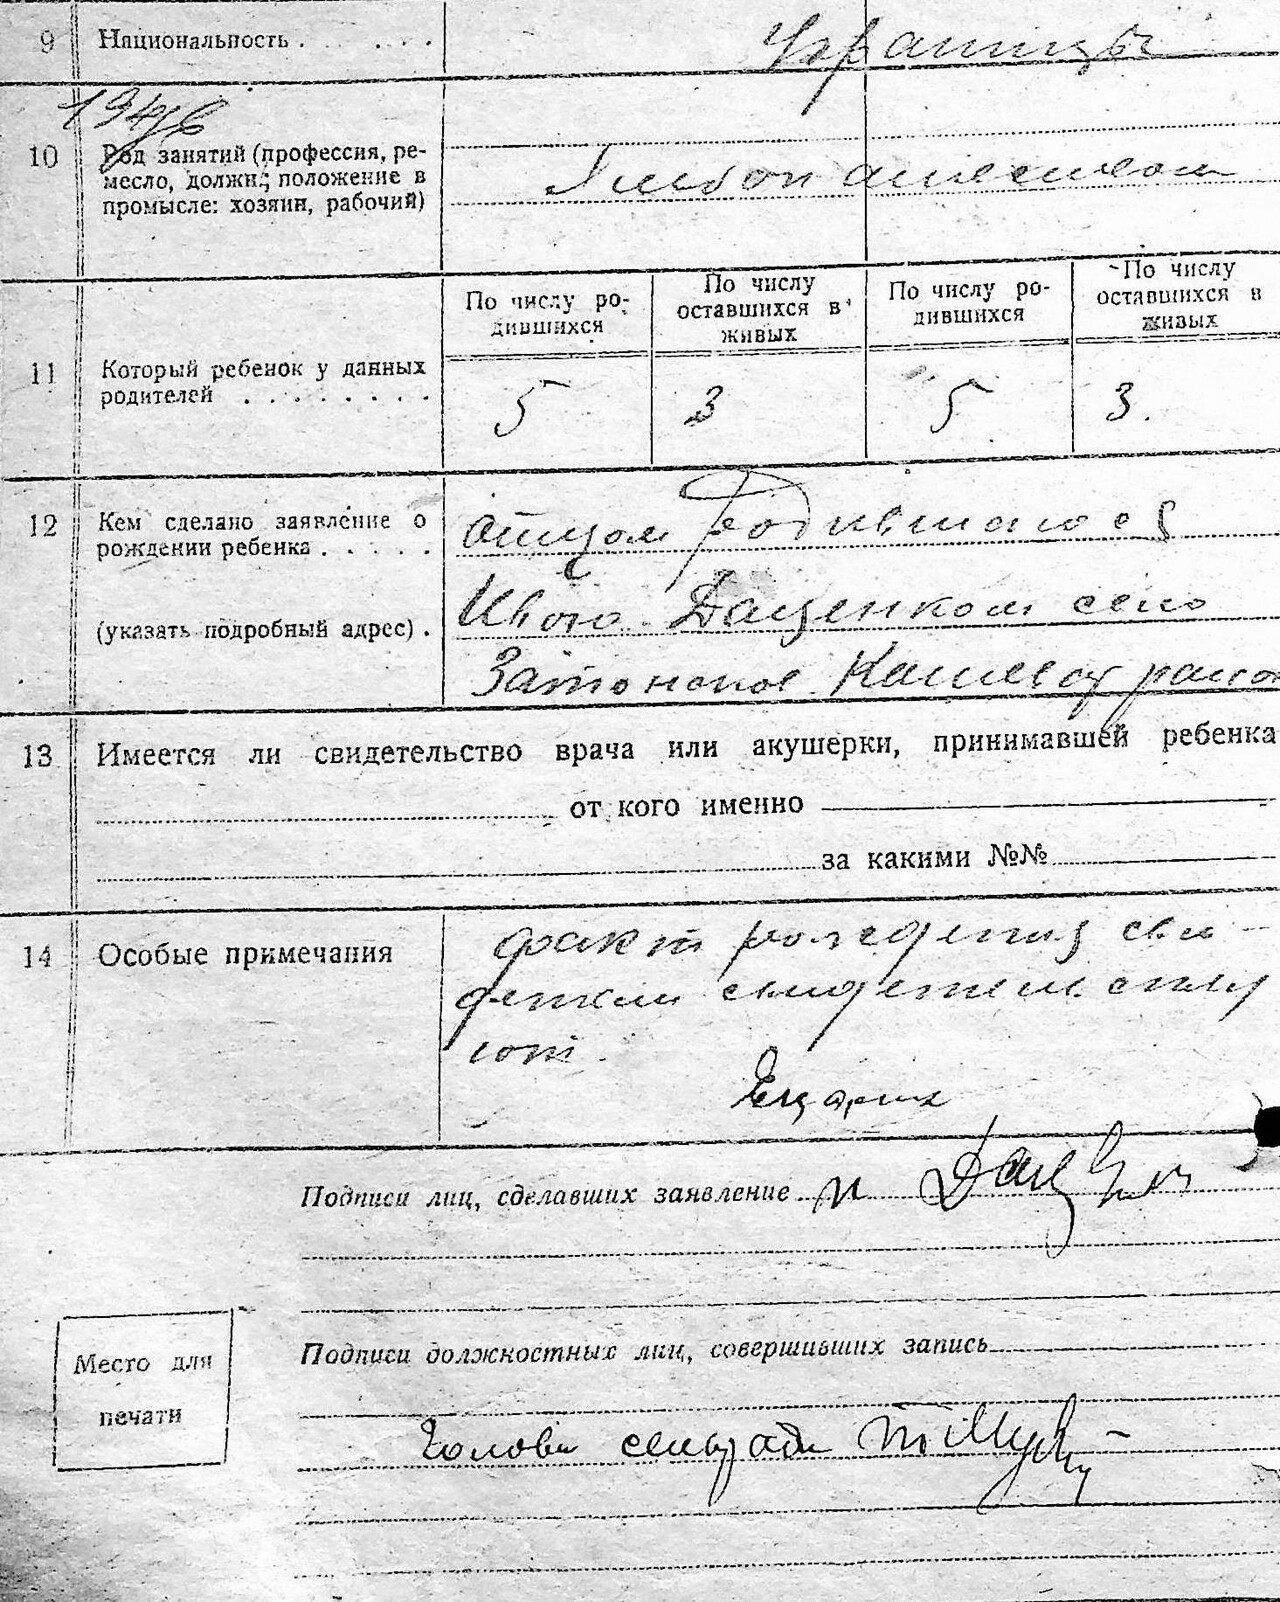 9 Национальность . . . . . . Украинцы
194
10 Род занятий (профессия, ре-
месло, должн.; положение в
промысле: хозяин, рабочий)
По числу ро-
дившихся
По числу
оставшихся в
живых
По числу ро-
дившихся
По числу
оставшихся в
живых
11 Который ребенок у данных
родителей . . . . . . . .
5 3 5 3.
12 Кем сделано заявление о
рождении ребенка . . . . .
отцом
(указать подробный адрес) .
Даценком село
Затонское
13 Имеется ли свидетельство врача или акушерки, принимавшей ребенка
от кого именно
за какими №№
14 Особые примечания
факт рождения сви-
детели свидетельству
ют.
Подписи лиц, сделавших заявление
Подписи должностных лиц, совершивших запись
Место для
печати
Голова сельради